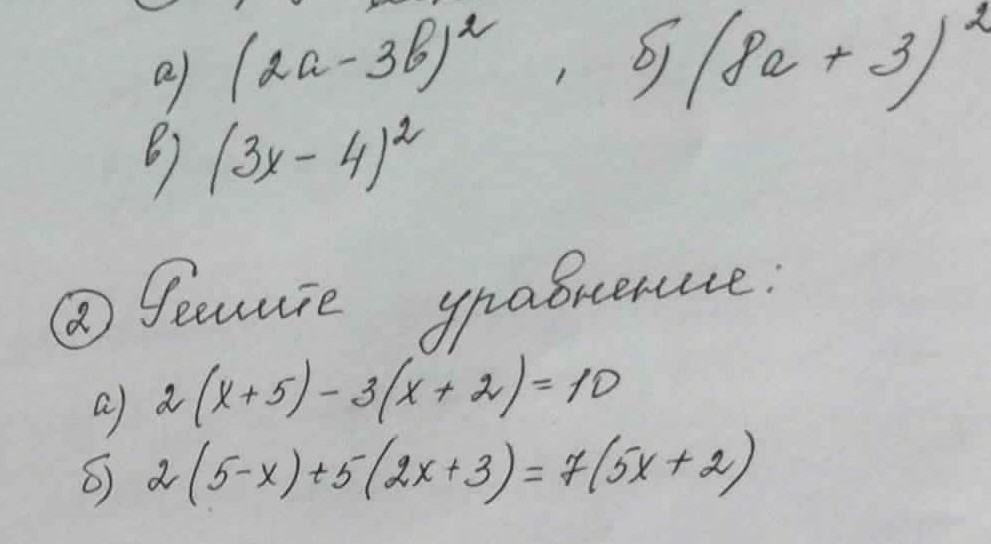 а) (2a - 3b)² , б) (8a + 3)²
в) (3x - 4)²
② Решите уравнение:
а) 2(x+5) - 3(x+2) = 10
б) 2(5-x)+5(2x+3) = 7(5x+2)